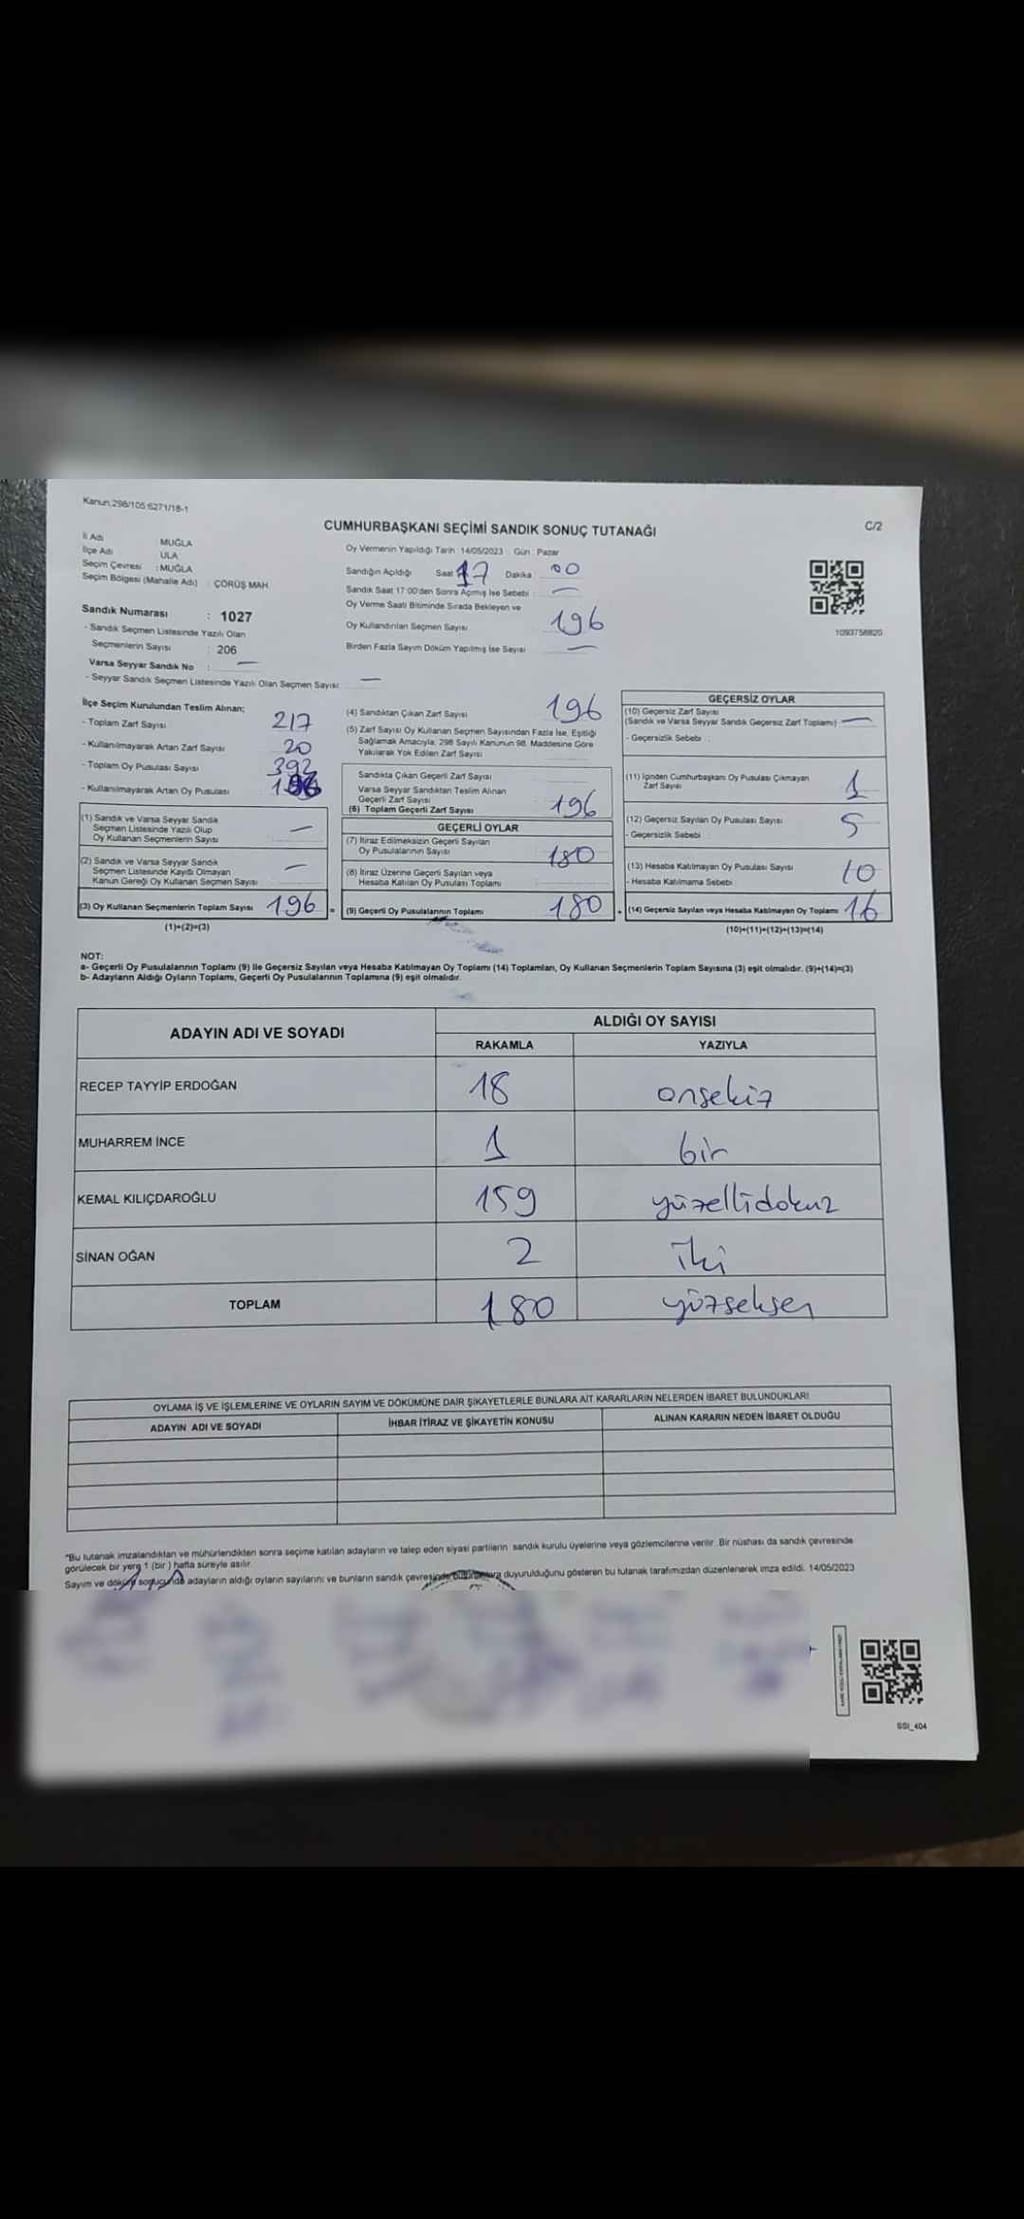 Kanun:298/105 6271/18-1
CUMHURBAŞKANI SEÇİMİ SANDIK SONUÇ TUTANAĞI
C/2
İl Adı MUĞLA
İlçe Adı ULA
Seçim Çevresi : MUĞLA
Seçim Bölgesi (Mahalle Adı) : ÇÖRÜŞ MAH.
Sandık Numarası : 1027
- Sandık Seçmen Listesinde Yazılı Olan
Seçmenlerin Sayısı : 206
Varsa Seyyar Sandık No : —
- Seyyar Sandık Seçmen Listesinde Yazılı Olan Seçmen Sayısı —
Oy Vermenin Yapıldığı Tarih : 14/05/2023 Gün : Pazar
Sandığın Açıldığı Saat 17 Dakika 00
Sandık Saat 17:00'den Sonra Açılmış İse Sebebi : —
Oy Verme Saati Bitiminde Sırada Bekleyen ve
Oy Kullandırılan Seçmen Sayısı 196
Birden Fazla Sayım Döküm Yapılmış İse Sayısı —
1093758820
İlçe Seçim Kurulundan Teslim Alınan;
- Toplam Zarf Sayısı 217
- Kullanılmayarak Artan Zarf Sayısı 20
- Toplam Oy Pusulası Sayısı 392
- Kullanılmayarak Artan Oy Pusulası
(1) Sandık ve Varsa Seyyar Sandık
Seçmen Listesinde Yazılı Olup
Oy Kullanan Seçmenlerin Sayısı —
(2) Sandık ve Varsa Seyyar Sandık
Seçmen Listesinde Kaydı Olmayan
Kanun Gereği Oy Kullanan Seçmen Sayısı —
(3) Oy Kullanan Seçmenlerin Toplam Sayısı 196 =
(1)+(2)=(3)
(4) Sandıktan Çıkan Zarf Sayısı 196
(5) Zarf Sayısı Oy Kullanan Seçmen Sayısından Fazla İse, Eşitliği
Sağlamak Amacıyla, 298 Sayılı Kanunun 98. Maddesine Göre
Yakılarak Yok Edilen Zarf Sayısı
Sandıkta Çıkan Geçerli Zarf Sayısı
Varsa Seyyar Sandıktan Teslim Alınan
Geçerli Zarf Sayısı
(6) Toplam Geçerli Zarf Sayısı 196
GEÇERLİ OYLAR
(7) İtiraz Edilmeksizin Geçerli Sayılan
Oy Pusulalarının Sayısı 180
(8) İtiraz Üzerine Geçerli Sayılan veya
Hesaba Katılan Oy Pusulası Toplamı
(9) Geçerli Oy Pusulalarının Toplamı 180 +
GEÇERSİZ OYLAR
(10) Geçersiz Zarf Sayısı
(Sandık ve Varsa Seyyar Sandık Geçersiz Zarf Toplamı) —
- Geçersizlik Sebebi :
(11) İçinden Cumhurbaşkanı Oy Pusulası Çıkmayan
Zarf Sayısı 1
(12) Geçersiz Sayılan Oy Pusulası Sayısı 5
- Geçersizlik Sebebi :
(13) Hesaba Katılmayan Oy Pusulası Sayısı 10
- Hesaba Katılmama Sebebi
(14) Geçersiz Sayılan veya Hesaba Katılmayan Oy Toplamı 16
(10)+(11)+(12)+(13)=(14)
NOT:
a- Geçerli Oy Pusulalarının Toplamı (9) ile Geçersiz Sayılan veya Hesaba Katılmayan Oy Toplamı (14) Toplamları, Oy Kullanan Seçmenlerin Toplam Sayısına (3) eşit olmalıdır. (9)+(14)=(3)
b- Adayların Aldığı Oyların Toplamı, Geçerli Oy Pusulalarının Toplamına (9) eşit olmalıdır.
ADAYIN ADI VE SOYADI
ALDIĞI OY SAYISI
RAKAMLA YAZIYLA
RECEP TAYYİP ERDOĞAN 18 onsekiz
MUHARREM İNCE 1 bir
KEMAL KILIÇDAROĞLU 159 yüzellidokuz
SİNAN OĞAN 2 iki
TOPLAM 180 yüzseksen
OYLAMA İŞ VE İŞLEMLERİNE VE OYLARIN SAYIM VE DÖKÜMÜNE DAİR ŞİKAYETLERLE BUNLARA AİT KARARLARIN NELERDEN İBARET BULUNDUKLARI
ADAYIN ADI VE SOYADI İHBAR İTİRAZ VE ŞİKAYETİN KONUSU ALINAN KARARIN NEDEN İBARET OLDUĞU
"Bu tutanak imzalandıktan ve mühürlendikten sonra seçime katılan adayların ve talep eden siyasi partilerin sandık kurulu üyelerine veya gözlemcilerine verilir. Bir nüshası da sandık çevresinde
görülecek bir yere 1 (bir) hafta süreyle asılır.
Sayım ve döküm sonucunda adayların aldığı oyların sayılarını ve bunların sandık çevresinde duyurulduğunu gösteren bu tutanak tarafımızdan düzenlenerek imza edildi. 14/05/2023
SSI_404